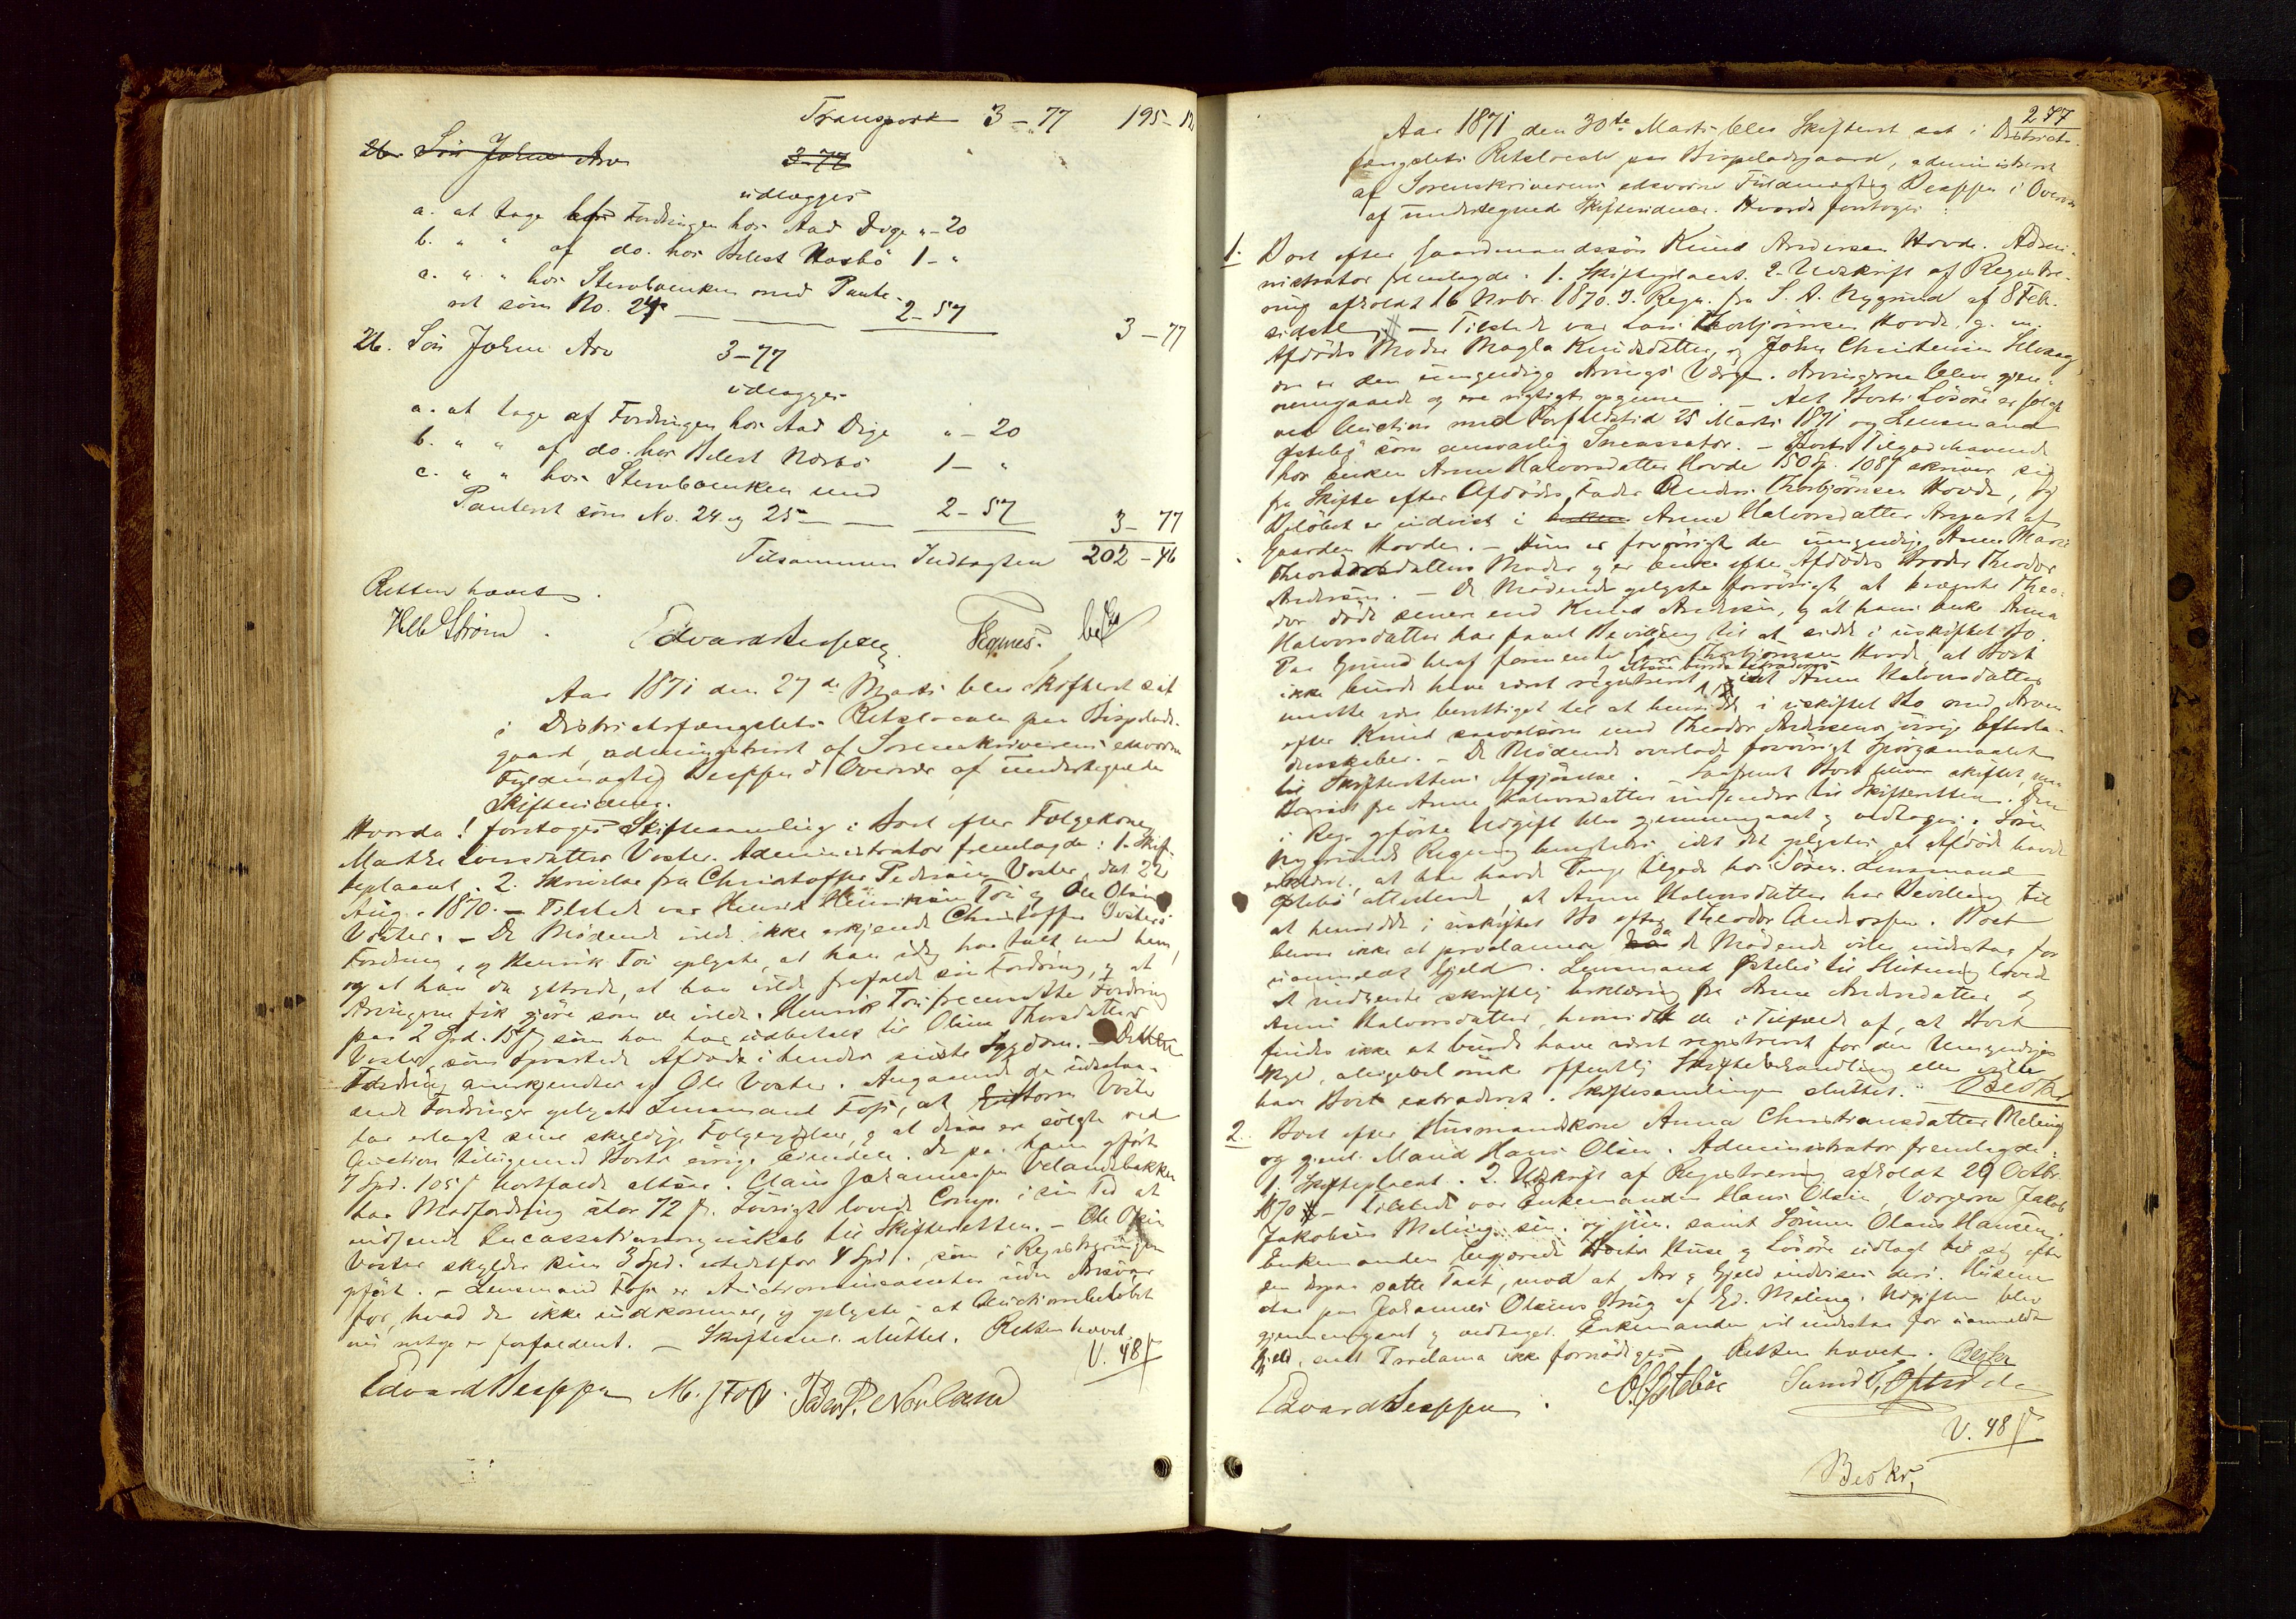 Transport 3 - 77 195 - 12
26. Søn Johns Arv 3-77
udlægges
a. at tage af Fordringen hos Aad Dige " - 20
b. " " af do. hos Helest Nærbø 1 - "
c. " " hos Stervboenken med Pante-
ret som No. 24 2 - 57
3 - 77
26. Søn Johns Arv 3-77
udlægges
a. at tage af Fordringen hos Aad Dige " - 20
b. " " af do. hos Helest Nærbø 1 - "
c. " " hos Stervboenken med
Panteret som No. 24 og 25 2 - 57 3 - 77
Tilsammen Indtægten 202 - 46
Retten hævet.
Edvard Jesppen
Aar 1871 den 27de Marts blev Skifteret sat
i Districtsfængslets Retslocale paa Bispelads-
gaard, administreret af Sorenskriverens edsvorne
Fuldmægtig Jesppen i Overvær af undertegnede
Skiftevidner.
Hvorda! foretoges Skiftesamling i Boet efter Følgekone
Marthe Iversdatter Voster. Administrator fremlagde: 1. Skif-
teplacat. 2. Skrivelse fra Christoffer Pedersen Voster, dat. 22
Aug. 1870. - Tilstede var Henrik Henriksen Tou og Ole Olsen
Voster. - De Mødende vilde ikke erkjende Christoffer Vosters
Fordring, og Henrik Tou oplyste, at han idag har talt med ham,
og at han da yttrede, at han vilde frafalde sin Fordring, og at
Arvingerne fik gjøre som de vilde. Henrik Tou fremsatte Fordring
paa 2 Spd. 15 ß som han har udbetalt til Oline Thorsdatter
Voster, som opvartede Afdøde i hendes sidste Sygdom. - Dette
Fordring anerkjendtes af Ole Voster. Angaaende de udestaa-
ende Fordringer oplyste Lensmand Foss, at Guttorm Voster
har erlagt sine skyldige Følgeydelser, og at disse er solgte ved
Auction tilligemed Boets øvrige Eiendele. De paa ham opførte
7 Spd. 105 ß bortfalde altsaa. Claus Johannessen Velandsbakken
har Modfordring stor 72 ß. Iøvrigt lovede Comp. i sin Tid at
indsende Incassationsregnskab til Skifteretten. - Ole Olsen
Voster skylder kun 3 Spd. istedetfor 4 Spd., som i Registreringen
opført. - Lensmand Foss er Auctionsincassator uden Ansvar
for, hvad der ikke indkommer, og oplyste at Auctionsbeløbet
nu netop er forfaldent. - Skiftesaml. sluttet. Retten hævet.
V. 48 ß
Edvard Jesppen M. J. Foss. Peder P. Norland
277
Aar 1871 den 30te Marts blev Skifteret sat i Districts-
fængslets Retslocale paa Bispeladsgaard, administreret
af Sorenskriverens edsvorne Fuldmægtig Jesppen i Overvær
af undertegnede Skiftevidner. Hvorda foretoges:
1. Boet efter Gaardmandssøn Knud Andersen Hovde. Admi-
nistrator fremlagde: 1. Skifteplacat. 2. Udskrift af Registre-
ring afholdt 16 Novbr. 1870. 3. Regn. fra S. A. Nygrund af 8 Feb.
sidstl. - Tilstede var Lars Thorbjørnsen Hovde, g. m.
Afdødes Moder Magla Knudsdatter, og John Christensen
der er den umyndige Arvings Værge. Arvingerne blev gjen-
nemgaaede og ere rigtigt opgivne. - Alt Boets Løsøre er solgt
ved Auction med Forfaldstid 25 Marts 1871 og Lensmand
Østebø som ansvarlig Incassator. - Boets Tilgodehavende
hos Enken Anne Halvorsdatter Hovde 150 Sp. 108 ß skriver sig
fra Skifte efter Afdødes Fader Anders Thorbjørnsen Hovde, og
Beløbet er indvist i Anne Halvorsdatters Anpart af
Gaarden Hovde. - Hun er forøvrigt den umyndige Anne Marie
Theodorsdatters Moder og er Enke efter Afdødes Broder Theodor
Andersen. - De Mødende oplyste forøvrigt, at bemeldte Theo-
dor døde senere end Knud Andersen, og at hans Enke Anna
Halvorsdatter har faaet Bevilling til at sidde i uskiftet Bo.
Paa Grund heraf formente Lars Thorbjørnsen Hovde, at Boet
ikke burde have været registreret og altsaa burde extraderes idet Anne Halvorsdatter
maatte være berettiget til at hensidde i uskiftet Bo med Arven
efter Knud saavelsom med Theodor Andersens øvrige Efterla-
denskaber. - De Mødende overlode forøvrigt Spørgsmaalet
til Skifterettens Afgjørelse. - Saafremt Boet bliver skiftet, maa
Bevis fra Anne Halvorsdatter indsendes til Skifteretten. Den
i Regn. opførte Udgift blev gjennemgaaet og vedtages. Søren
Nygrunds Regning benægtes idet det oplystes, at Afdøde havde
erklæret, at han havde Penge tilgode hos Søren. Lensmand
Østebø attesterede, at Anne Halvorsdatter har Bevilling til
at hensidde i uskiftet Bo efter Theodor Andersen. Boet
bliver ikke at proclamere da de Mødende ville indestaa for
uanmeldt Gjeld. Lensmand Østebø til Slutning lovede
at indhente skriftlig Erklæring fra Anne Andersdatter og
Anne Halvorsdatter, hvorvidt de i Tilfælde af, at Boet
findes ikke at burde have været registreret for den Umyndiges
Skyld, alligevel ønske offentlig Skiftebehandling eller ville
have Boet extraderet. Skiftesamlingen sluttet. Beskr.
2. Boet efter Husmandskone Anna Christiansdatter Meling
og gjenl. Mand Hans Olsen. Administrator fremlagde:
1. Skifteplacat. 2. Udskrift af Registrering afholdt 29 Octbr.
1870. - Tilstede var Enkemanden Hans Olsen, Værgerne Jakob
Jakobsen Meling sen. og jun. samt Sønnen Olaus Hansen.
Enkemanden begjærede Boets Huse og Løsøre udlagt til sig efter
den derpaa satte Taxt, mod at Arv og Gjeld indvises deri. Husene
staa paa Johannes Olsens Brug af Gd. Meling. Udgiften blev
gjennemgaaet og vedtaget. Enkemanden vil indestaa for uanmeldt
Gjeld, saa Proclama ikke fornødiges. Retten hævet. Beskr.
Edvard Jesppen. O. Østebøe
V. 48 ß
Beskr.